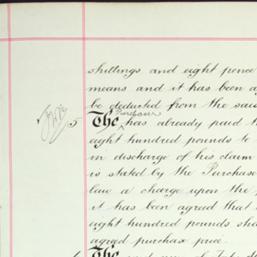 shillings and eight pence
means and it has been a
be deducted from the sai
Purchaser
5 The has already paid t
eight hundred pounds to
in discharge of his claim
is stated by the Purchase
law a charge upon the
it has been agreed that
eight hundred pounds sho
agreed purchase price.
The